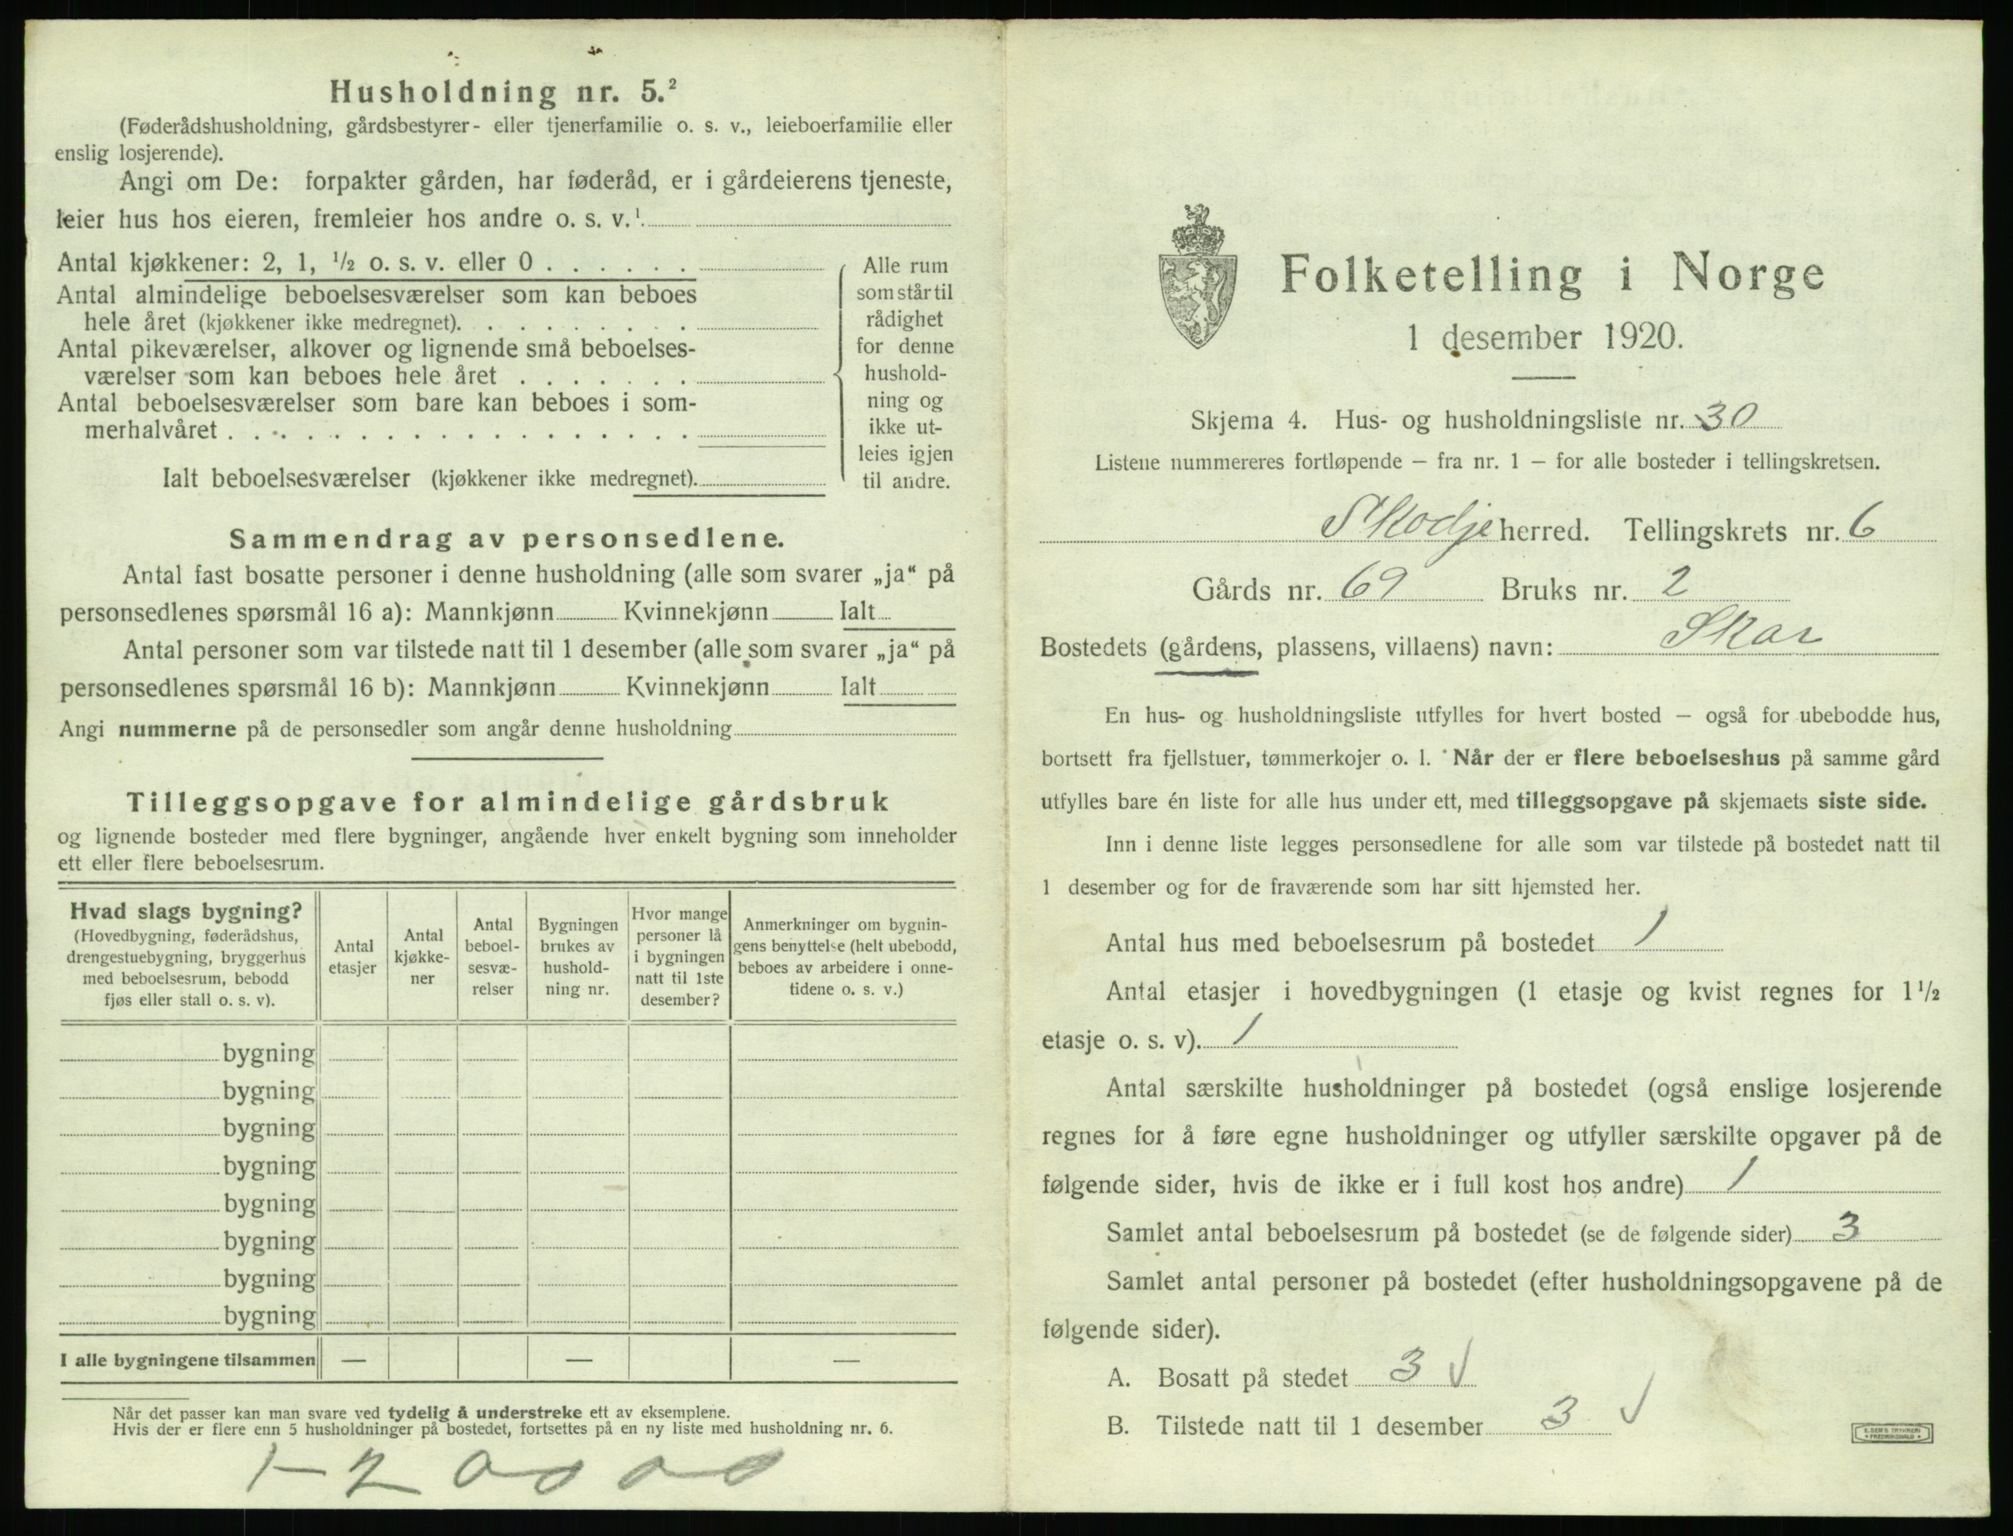 Husholdning nr. 5.²
(Føderådshusholdning, gårdsbestyrer- eller tjenerfamilie o. s. v., leieboerfamilie eller
enslig losjerende).
Angi om De: forpakter gården, har føderåd, er i gårdeierens tjeneste,
leier hus hos eieren, fremleier hos andre o. s. v.¹
Antal kjøkkener: 2, 1, ½ o. s. v. eller 0 . . . . . .
Antal almindelige beboelsesværelser som kan beboes
hele året (kjøkkener ikke medregnet). . . . . . . . .
Antal pikeværelser, alkover og lignende små beboelses-
værelser som kan beboes hele året . . . . . . .
Antal beboelsesværelser som bare kan beboes i som-
merhalvåret . . . . . . . . . . . . . . . . . .
Ialt beboelsesværelser (kjøkkener ikke medregnet).
Alle rum
som står til
rådighet
for denne
hushold-
ning og
ikke ut-
leies igjen
til andre.
Sammendrag av personsedlene.
Antal fast bosatte personer i denne husholdning (alle som svarer „ja“ på
personsedlenes spørsmål 16 a): Mannkjønn Kvinnekjønn Ialt
Antal personer som var tilstede natt til 1 desember (alle som svarer „ja“ på
personsedlenes spørsmål 16 b): Mannkjønn Kvinnekjønn Ialt
Angi nummerne på de personsedler som angår denne husholdning
Tilleggsopgave for almindelige gårdsbruk
og lignende bosteder med flere bygninger, angående hver enkelt bygning som inneholder
ett eller flere beboelsesrum.
Hvad slags bygning?
(Hovedbygning, føderådshus,
drengestuebygning, bryggerhus
med beboelsesrum, bebodd
fjøs eller stall o. s. v).
Antal
etasjer
Antal
kjøkke-
ner
Antal
beboel-
sesvæ-
relser
Bygningen
brukes av
hushold-
ning nr.
Hvor mange
personer lå
i bygningen
natt til 1ste
desember?
Anmerkninger om bygnin-
gens benyttelse (helt ubebodd,
beboes av arbeidere i onne-
tidene o. s. v.)
bygning
bygning
bygning
bygning
bygning
bygning
bygning
bygning
I alle bygningene tilsammen — — —
Når det passer kan man svare ved tydelig å understreke ett av eksemplene.
Hvis der er flere enn 5 husholdninger på bostedet, fortsettes på en ny liste med husholdning nr. 6.
1-2 0 0 0 0
Folketelling i Norge
1 desember 1920.
Skjema 4. Hus- og husholdningsliste nr. 30
Listene nummereres fortløpende — fra nr. 1 — for alle bosteder i tellingskretsen.
Skodje herred. Tellingskrets nr. 6
Gårds nr. 69 Bruks nr. 2
Bostedets (gårdens, plassens, villaens) navn: Skar
En hus- og husholdningsliste utfylles for hvert bosted — også for ubebodde hus,
bortsett fra fjellstuer, tømmerkojer o. l. Når der er flere beboelseshus på samme gård
utfylles bare én liste for alle hus under ett, med tilleggsopgave på skjemaets siste side.
Inn i denne liste legges personsedlene for alle som var tilstede på bostedet natt til
1 desember og for de fraværende som har sitt hjemsted her.
Antal hus med beboelsesrum på bostedet 1
Antal etasjer i hovedbygningen (1 etasje og kvist regnes for 1½
etasje o. s. v). 1
Antal særskilte husholdninger på bostedet (også enslige losjerende
regnes for å føre egne husholdninger og utfyller særskilte opgaver på de
følgende sider, hvis de ikke er i full kost hos andre) 1
Samlet antal beboelsesrum på bostedet (se de følgende sider) 3
Samlet antal personer på bostedet (efter husholdningsopgavene på de
følgende sider).
A. Bosatt på stedet 3 √
B. Tilstede natt til 1 desember 3 √
E. SEM'S TRYKKERI
FREDRIKSHALD